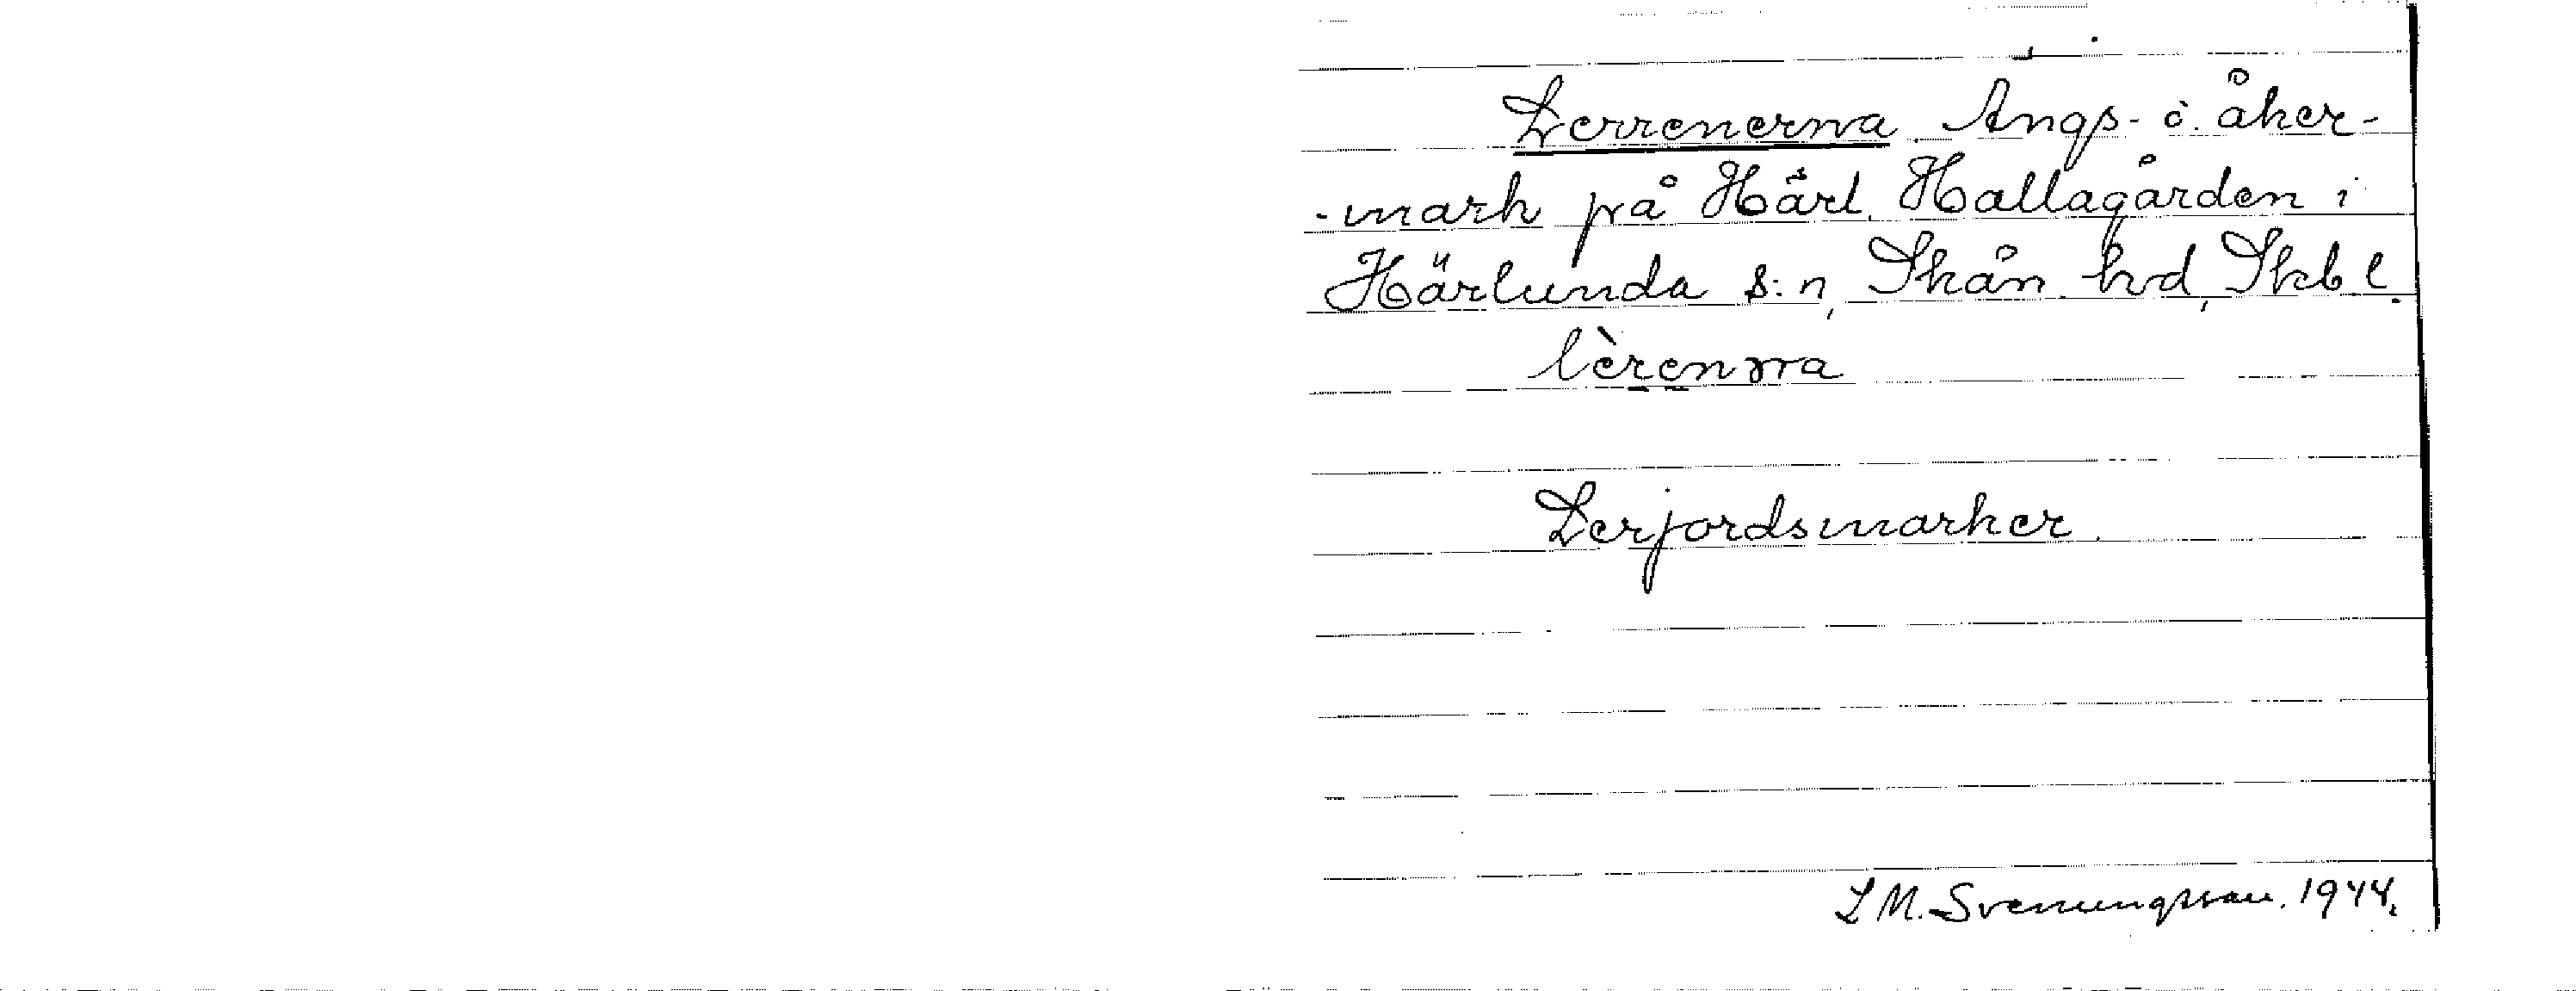 Lerrenerna. Ängs- o. åker-
-mark på Härl. Hallagården i
Härlunda s:n, Skån. hd, Skb. l.
lèrenɤra
Lerjordsmarker.
L M. Svenungsson. 1944.